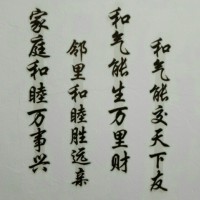 家庭和睦万事兴
邻里和睦胜远亲
和气能生万里财
和气能交天下友